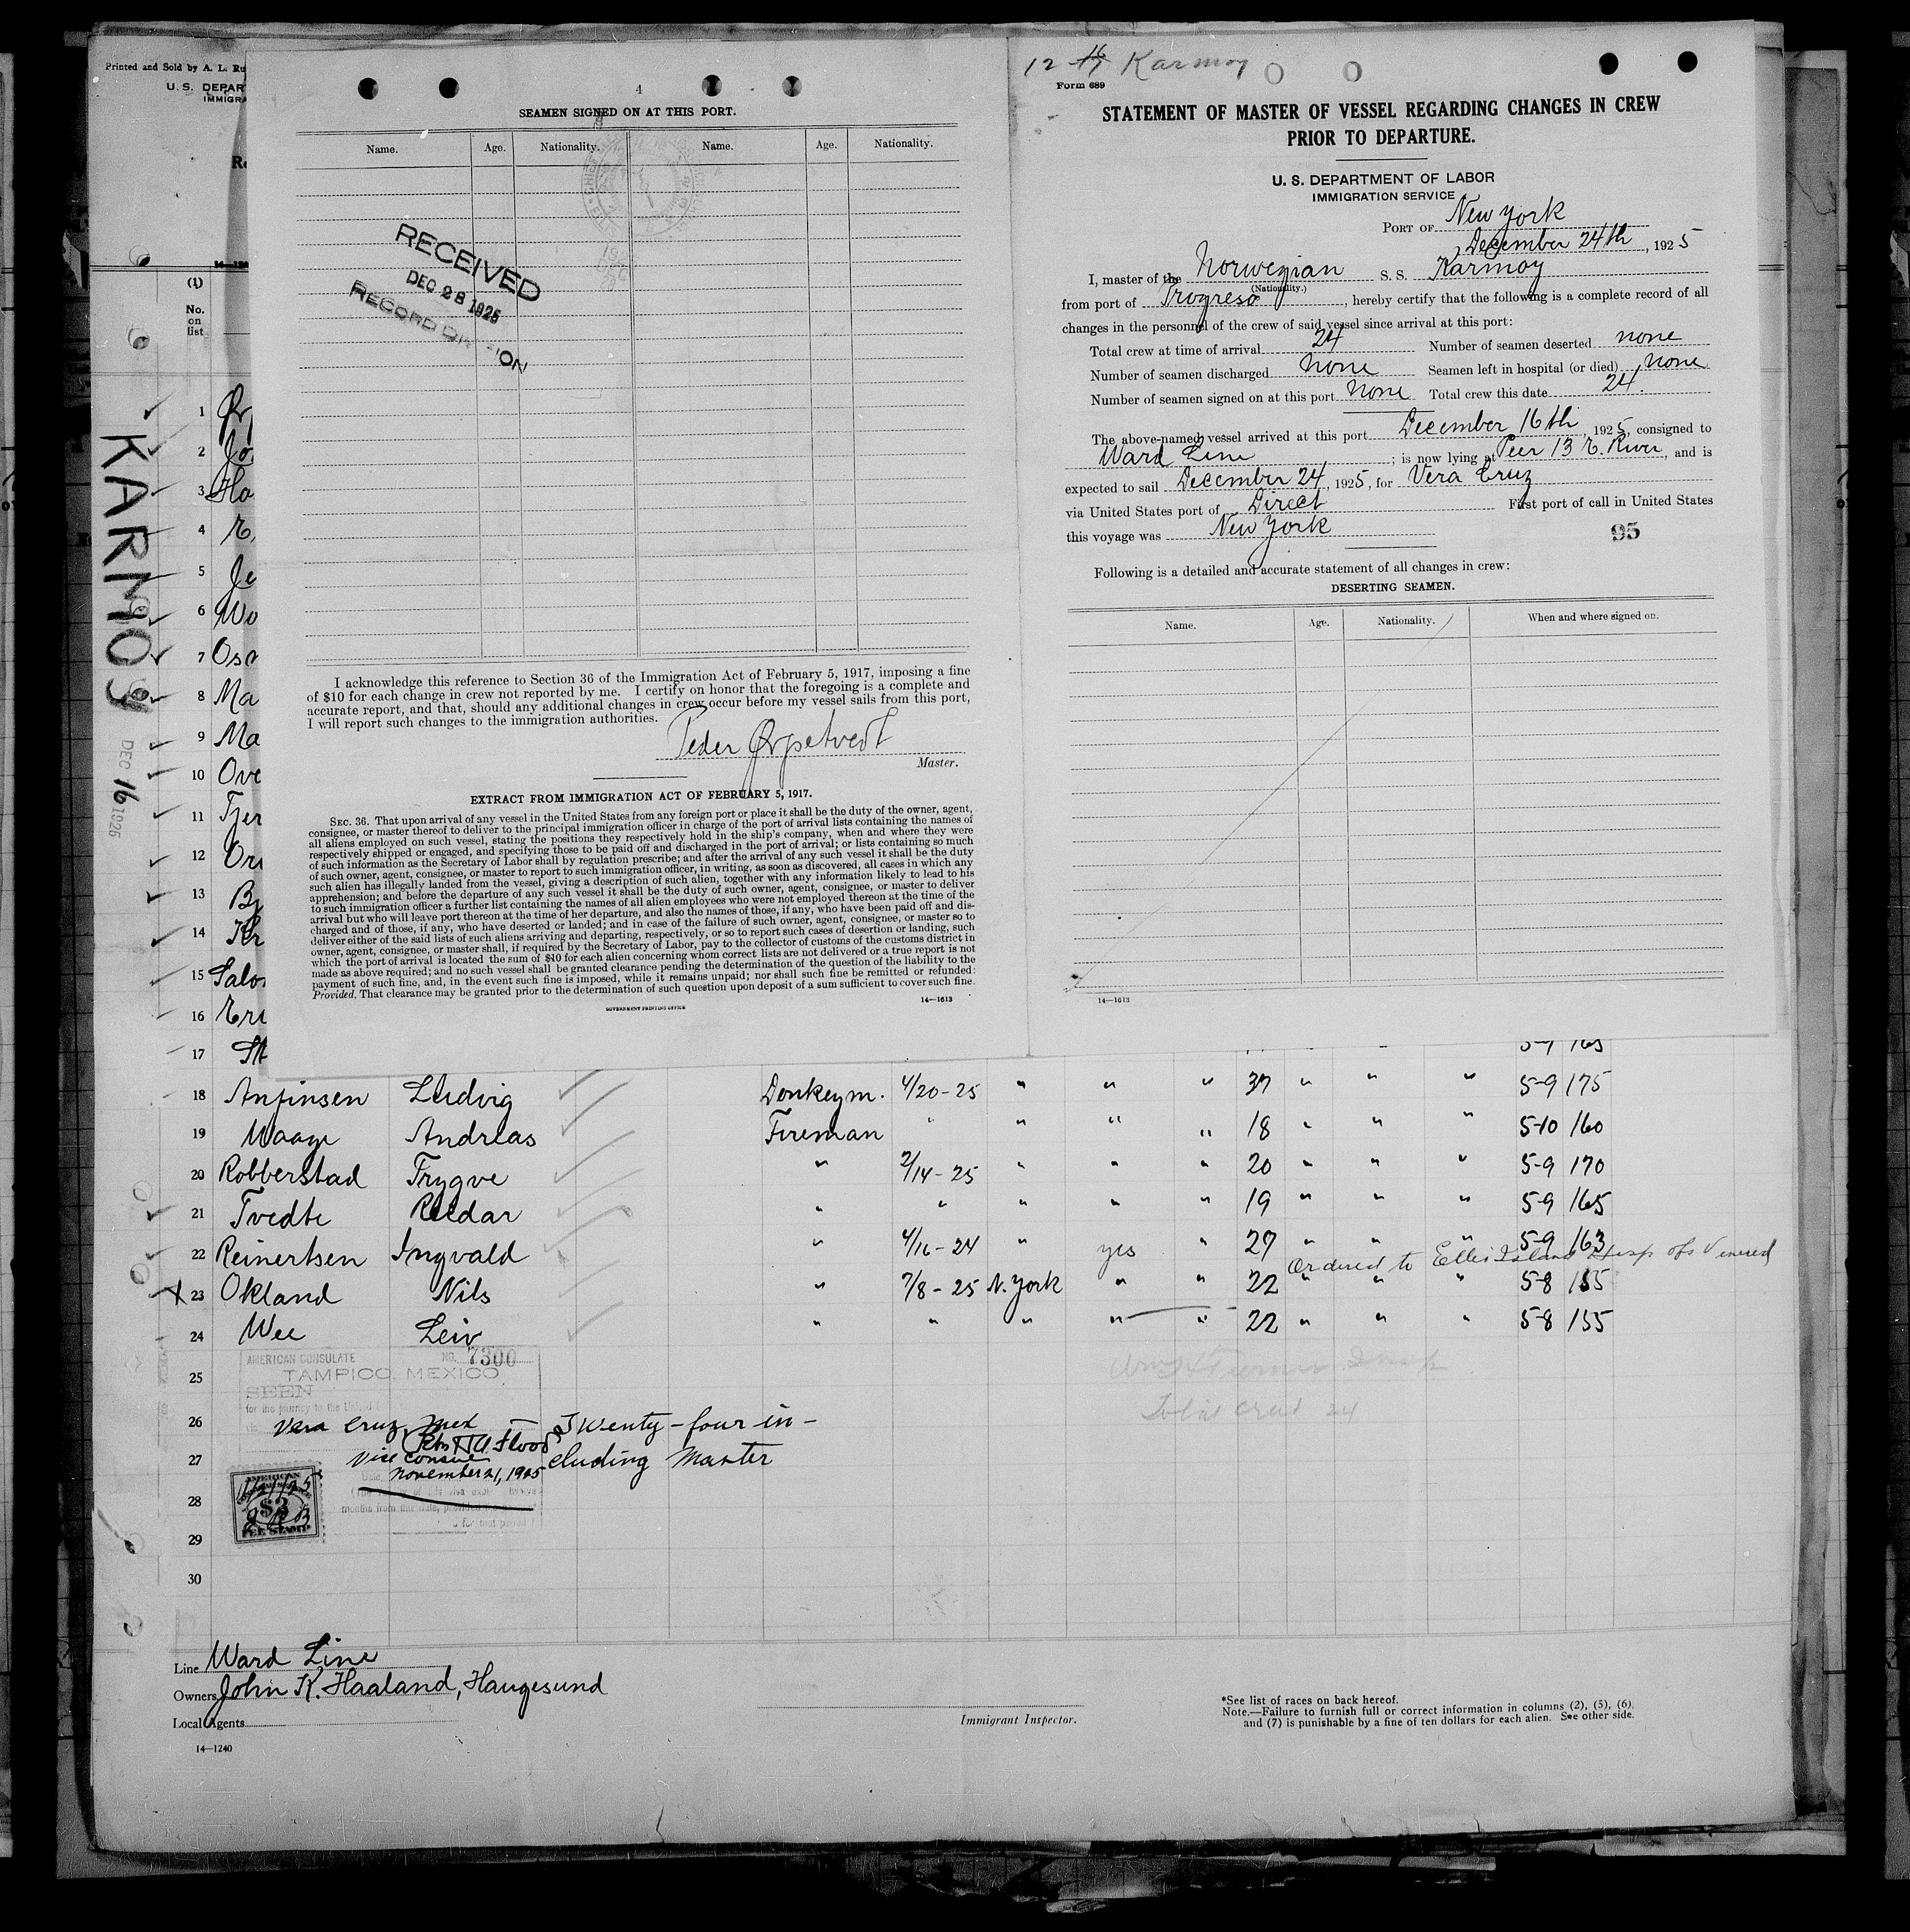 Printed and Sold by A. L. Ru
U. S. DEPAR
IMMIGRA
(1)
No.
on
list
KARMOY
DEC 16 1925
4
SEAMEN SIGNED ON AT THIS PORT.
Name. Age. Nationality. Name. Age. Nationality.
RECEIVED
DEC 28 1925
RECORD
I acknowledge this reference to Section 36 of the Immigration Act of February 5, 1917, imposing a fine
of $10 for each change in crew not reported by me. I certify on honor that the foregoing is a complete and
accurate report, and that, should any additional changes in crew occur before my vessel sails from this port,
I will report such changes to the immigration authorities.
Peder
Master.
EXTRACT FROM IMMIGRATION ACT OF FEBRUARY 5, 1917.
SEC. 36. That upon arrival of any vessel in the United States from any foreign port or place it shall be the duty of the owner, agent,
consignee, or master thereof to deliver to the principal immigration officer in charge of the port of arrival lists containing the names of
all aliens employed on such vessel, stating the positions they respectively hold in the ship's company, when and where they were
respectively shipped or engaged, and specifying those to be paid off and discharged in the port of arrival; or lists containing so much
of such information as the Secretary of Labor shall by regulation prescribe; and after the arrival of any such vessel it shall be the duty
of such owner, agent, consignee, or master to report to such immigration officer, in writing, as soon as discovered, all cases in which any
such alien has illegally landed from the vessel, giving a description of such alien, together with any information likely to lead to his
apprehension; and before the departure of any such vessel it shall be the duty of such owner, agent, consignee, or master to deliver
to such immigration officer a further list containing the names of all alien employees who were not employed thereon at the time of the
arrival but who will leave port thereon at the time of her departure, and also the names of those, if any, who have been paid off and dis-
charged and of those, if any, who have deserted or landed; and in case of the failure of such owner, agent, consignee, or master so to
deliver either of the said lists of such aliens arriving and departing, respectively, or so to report such cases of desertion or landing, such
owner, agent, consignee, or master shall, if required by the Secretary of Labor, pay to the collector of customs of the customs district in
which the port of arrival is located the sum of $10 for each alien concerning whom correct lists are not delivered or a true report is not
made as above required; and no such vessel shall be granted clearance pending the determination of the question of the liability to the
payment of such fine, and, in the event such fine is imposed, while it remains unpaid; nor shall such fine be remitted or refunded:
Provided, That clearance may be granted prior to the determination of such question upon deposit of a sum sufficient to cover such fine.
14—1613
GOVERNMENT PRINTING OFFICE
12 16 Karmoy
Form 689
STATEMENT OF MASTER OF VESSEL REGARDING CHANGES IN CREW
PRIOR TO DEPARTURE.
U. S. DEPARTMENT OF LABOR
IMMIGRATION SERVICE
PORT OF New York
December 24th, 1925
I, master of the Norwegian S. S. Karmoy
(Nationality.)
from port of Progreso, hereby certify that the following is a complete record of all
changes in the personnel of the crew of said vessel since arrival at this port:
Total crew at time of arrival 24 Number of seamen deserted none
Number of seamen discharged None Seamen left in hospital (or died) None
Number of seamen signed on at this port None Total crew this date 24.
The above-named vessel arrived at this port December 16th, 1925, consigned to
Ward Line; is now lying at Peer 13 E. River, and is
expected to sail December 24, 1925, for Vera Cruz
via United States port of Direct First port of call in United States
this voyage was New York
95
Following is a detailed and accurate statement of all changes in crew:
DESERTING SEAMEN.
Name. Age. Nationality. When and where signed on.
14—1613
1
2 Jo
3 Ha
4
5 Je
6 Wo
7 Osc
8 Ma
9 Ma
10 Ove
11 Tjer
12
13
14 Kr
15 Salo
16
17
18 Anfinsen Ludvig Donkeym. 4/20-25 " " " 37 " " " 5-9 175
19 Waage Andreas Fireman " " " " 18 " " " 5-10 160
20 Robberstad Trygve " 2/14-25 " " " 20 " " " 5-9 170
21 Tvedte Reidar " " " " " 19 " " " 5-9 165
22 Reinertsen Ingvald " 4/16-24 " yes " 27 " " " 5-9 163
Ordered to Ellis Island Hosp obs Venereal
23 Okland Nils " 7/8-25 N. York " " 22 " " " 5-8 155
24 Wee Leiv " " " " " 22 " " " 5-8 155
25
26
27
28
29
30
AMERICAN CONSULATE NO. 7300
TAMPICO, MEXICO
SEEN
for the journey to the United
Vera Cruz, Mex
Vice Consul
November 21, 1925
Twenty-four in-
cluding Master
AMERICAN
11/21/25
$2
FEE STAMP
Total crew 24
Line Ward Line
Owners John K. Haaland, Haugesund
Local Agents
14—1240
Immigrant Inspector.
*See list of races on back hereof.
Note.—Failure to furnish full or correct information in columns (2), (5), (6),
and (7) is punishable by a fine of ten dollars for each alien. See other side.